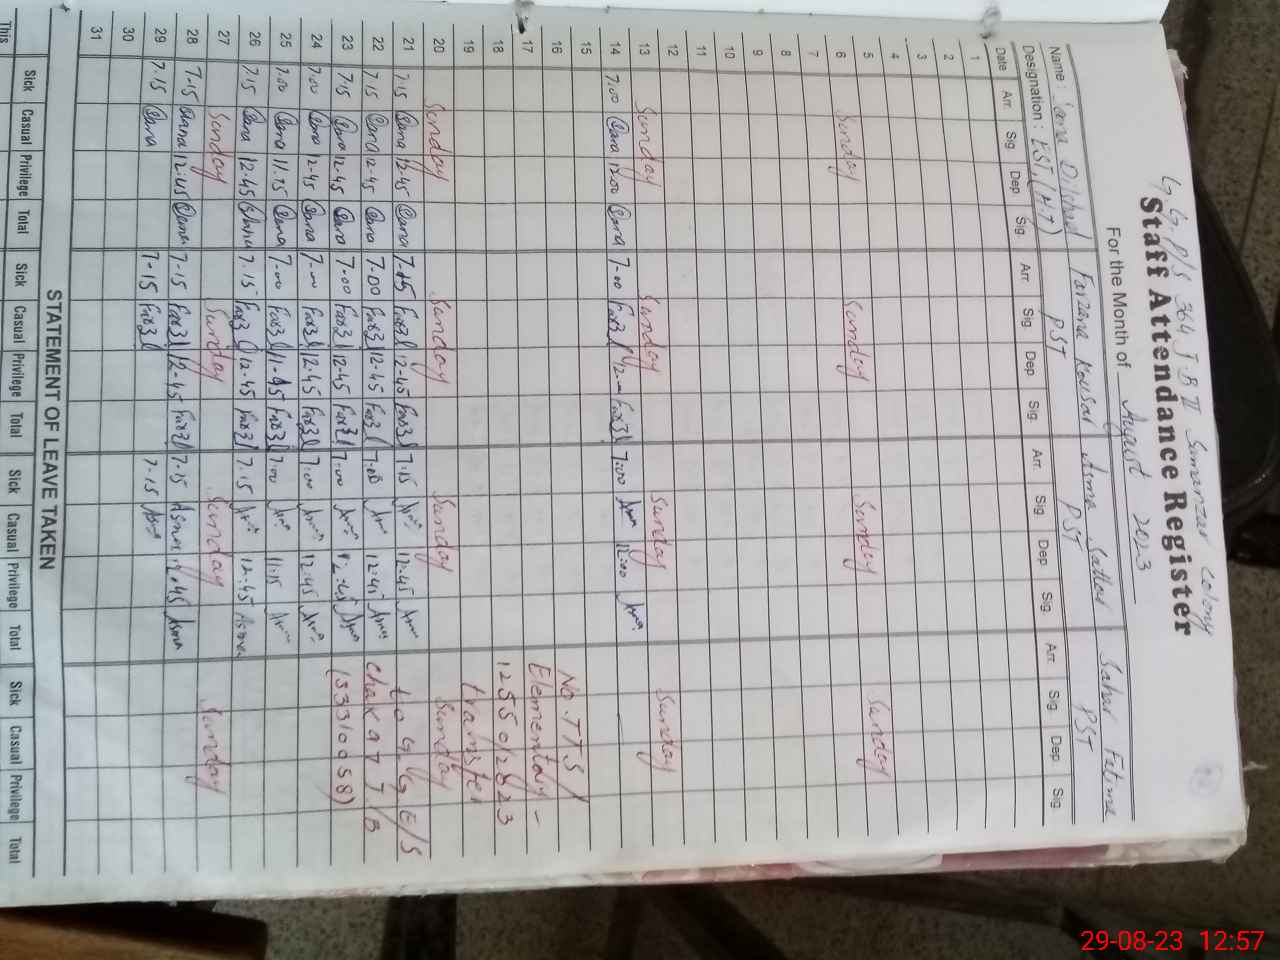 G.G.P/S 364 J.B II Sumanzar Colony
Staff Attendance Register
For the Month of August 2023
Name : Sana Dilshad Farzana Kousar Asma Sattar Sahar Fatima
Designation : EST,(H.T) PST PST PST
Date Arr. Sig. Dep Sig. Arr. Sig. Dep Sig. Arr. Sig. Dep Sig. Arr. Sig. Dep Sig.
1
2
3
4
5
6 Sunday Sunday Sunday Sunday
7
8
9
10
11
12
13 Sunday Sunday Sunday Sunday
14 7.00 Sana 12.00 Sana 7-00 12- 7:00 Asma 12:00 Asma
15 No. TTS/
16 Elementary-
17 1255012823
18 transfer
19
20 Sunday Sunday Sunday Sunday
21 7.15 Sana 12.45 Sana 7-15 12-45 7.15 12.45 to GG E/S
22 7.15 Sana 12-45 Sana 7.00 12-45 7:00 12:45 chak 97 J/B
23 7.15 Sana 12.45 Sana 7-00 12-45 7:00 12:45 (33310058)
24 7.00 Sana 12-45 Sana 7-00 12-45 7:00 12:45
25 7.00 Sana 11.15 Sana 7-00 11-15 7:00 11:15
26 7.15 Sana 12.45 Sana 7.15 12.45 7.15 12.45 Asma
27 Sunday Sunday Sunday Sunday
28 7.15 Sana 12.45 Sana 7-15 12-45 7-15 Asma 12.45 Asma
29 7.15 Sana 7-15 7.15 Asma
30
31
STATEMENT OF LEAVE TAKEN
Sick Casual Privilege Total Sick Casual Privilege Total Sick Casual Privilege Total Sick Casual Privilege Total
This
29-08-23 12:57